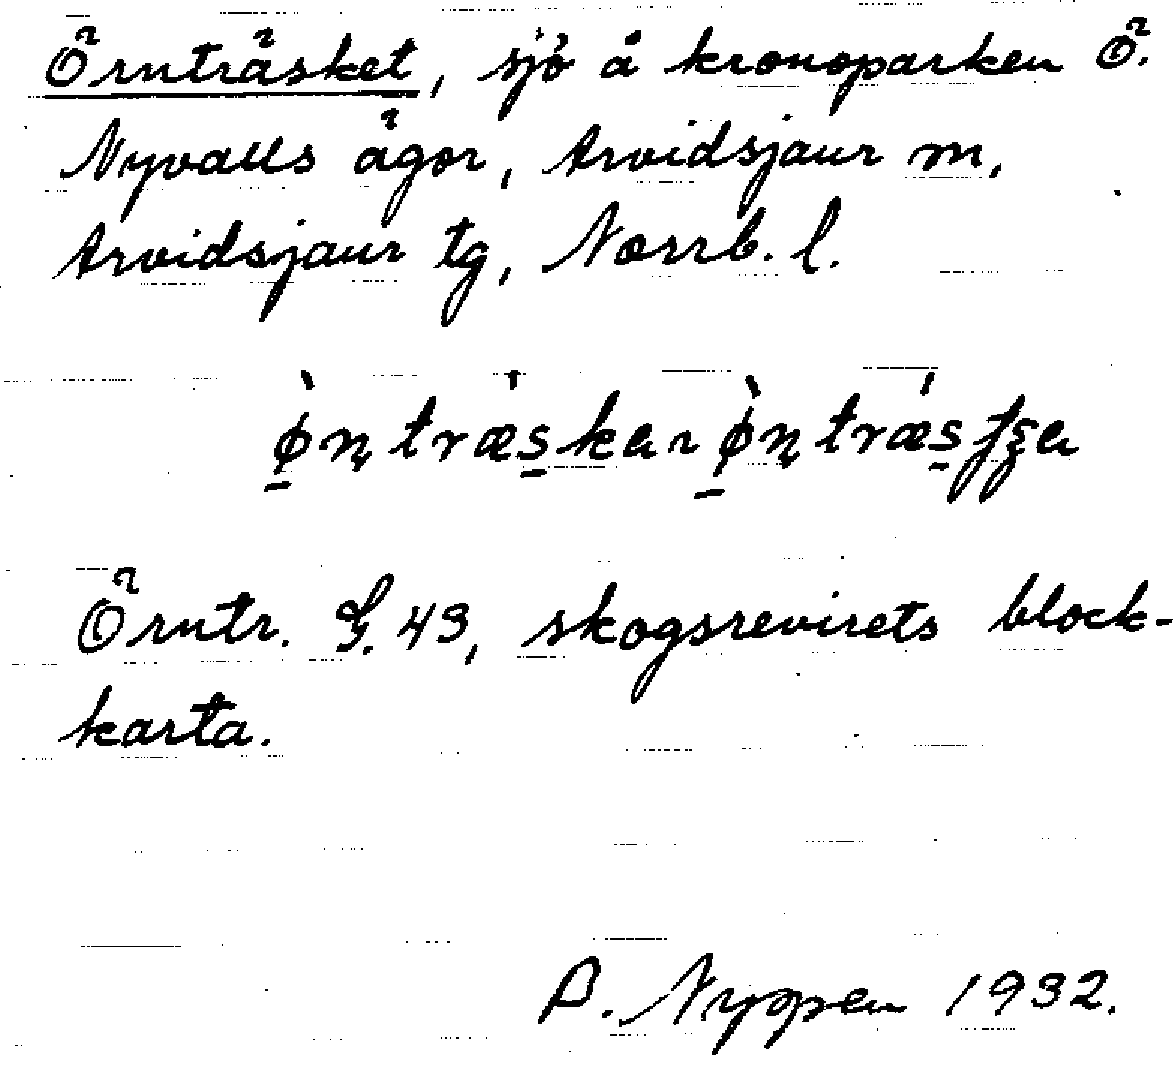 Örnträsket, sjö å kronoparken Ö.
Nyvalls ägor, Arvidsjaur sn,
Arvidsjaur tg, Norrb. l.
Örntr. G. 43, skogsrevirets block-
karta.
P. Nyppen 1932.